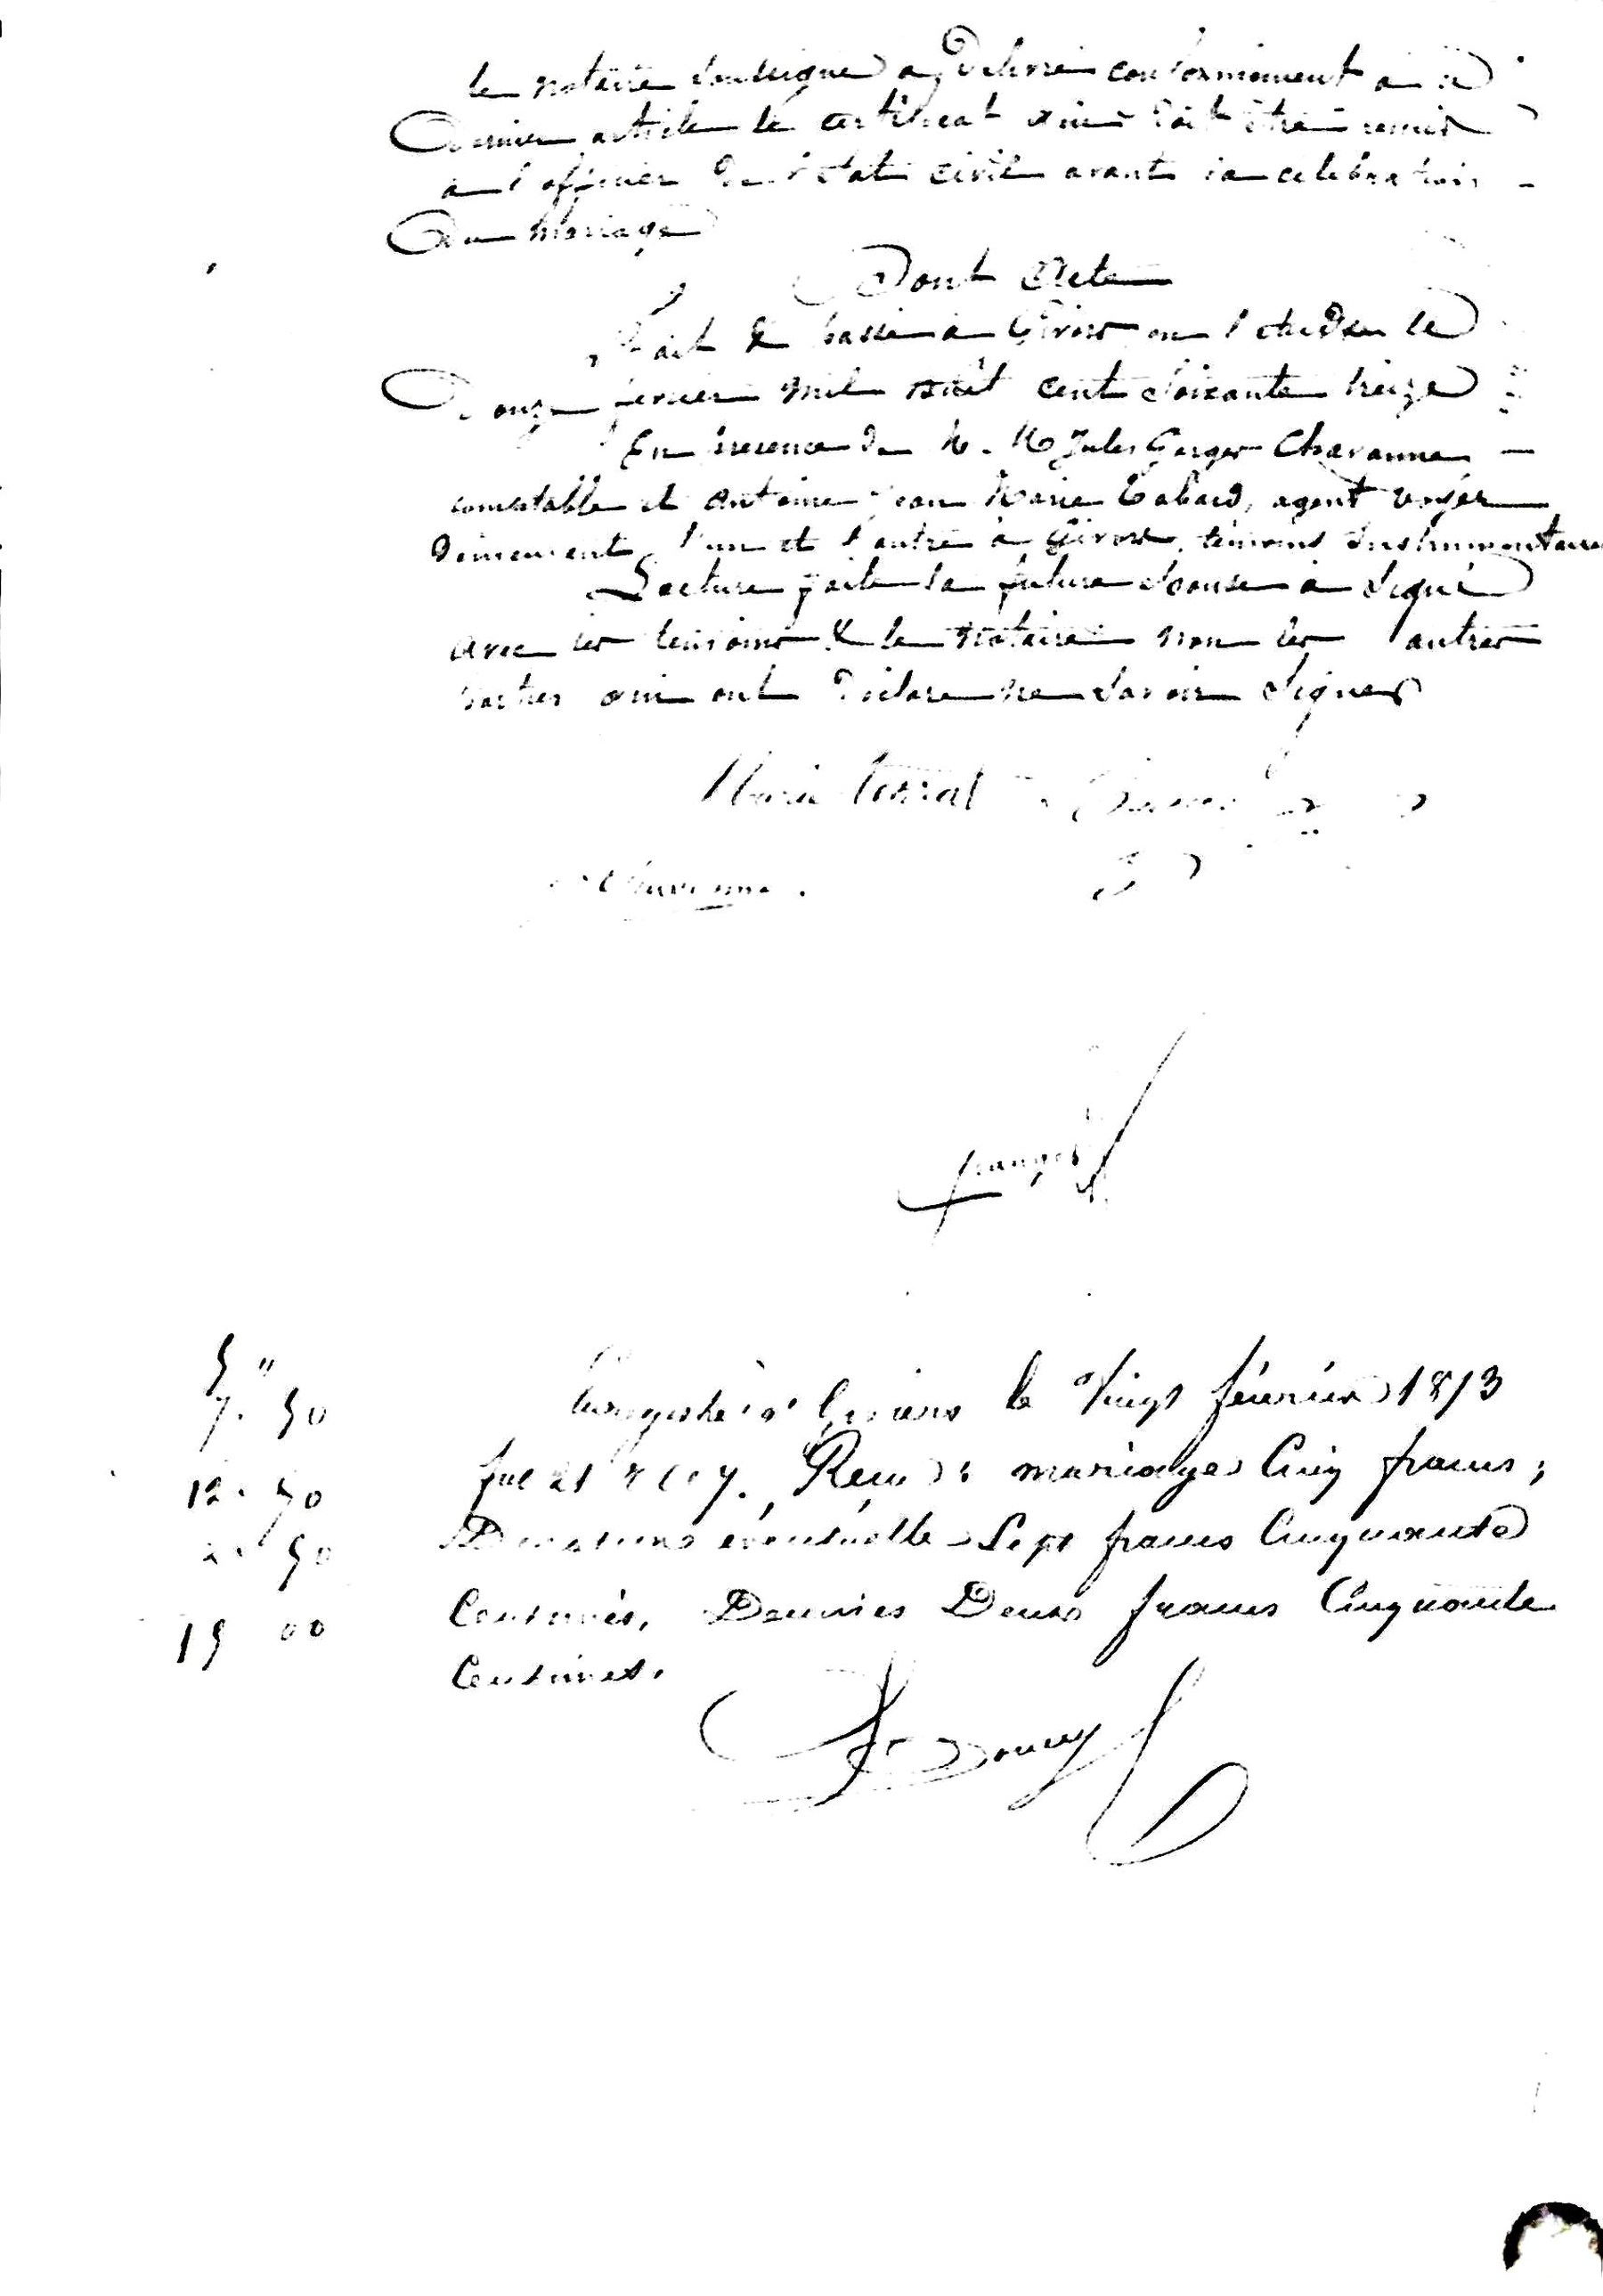 le notaire soussigné a délivré conformément à ce
dernier article le certificat qui doit être remis
à l'officier de l'état civil avant la célébration
du mariage
Dont Acte
Fait & passé à Givors en l'étude le
douze février mil huit cent soixante treize
En présence de M. M Jules Chavanne
comptable et Antoine Jean Marie Tabard, agent voyer
demeurant l'un et l'autre à Givors, témoins instrumentaires
Lecture faite la future épouse a signé
avec les témoins & le notaire non les autres
parties qui ont déclaré ne savoir signer
Marie
Chavanne
françois
5 "
7. 50
12. 50
2. 50
15 00
Enregistré à Givors le Vingt février 1873
fol 21 Reçu : mariage Cinq francs ;
Donations éventuelle Sept francs Cinquante
Centimes, Décimes Deux francs Cinquante
Centimes.